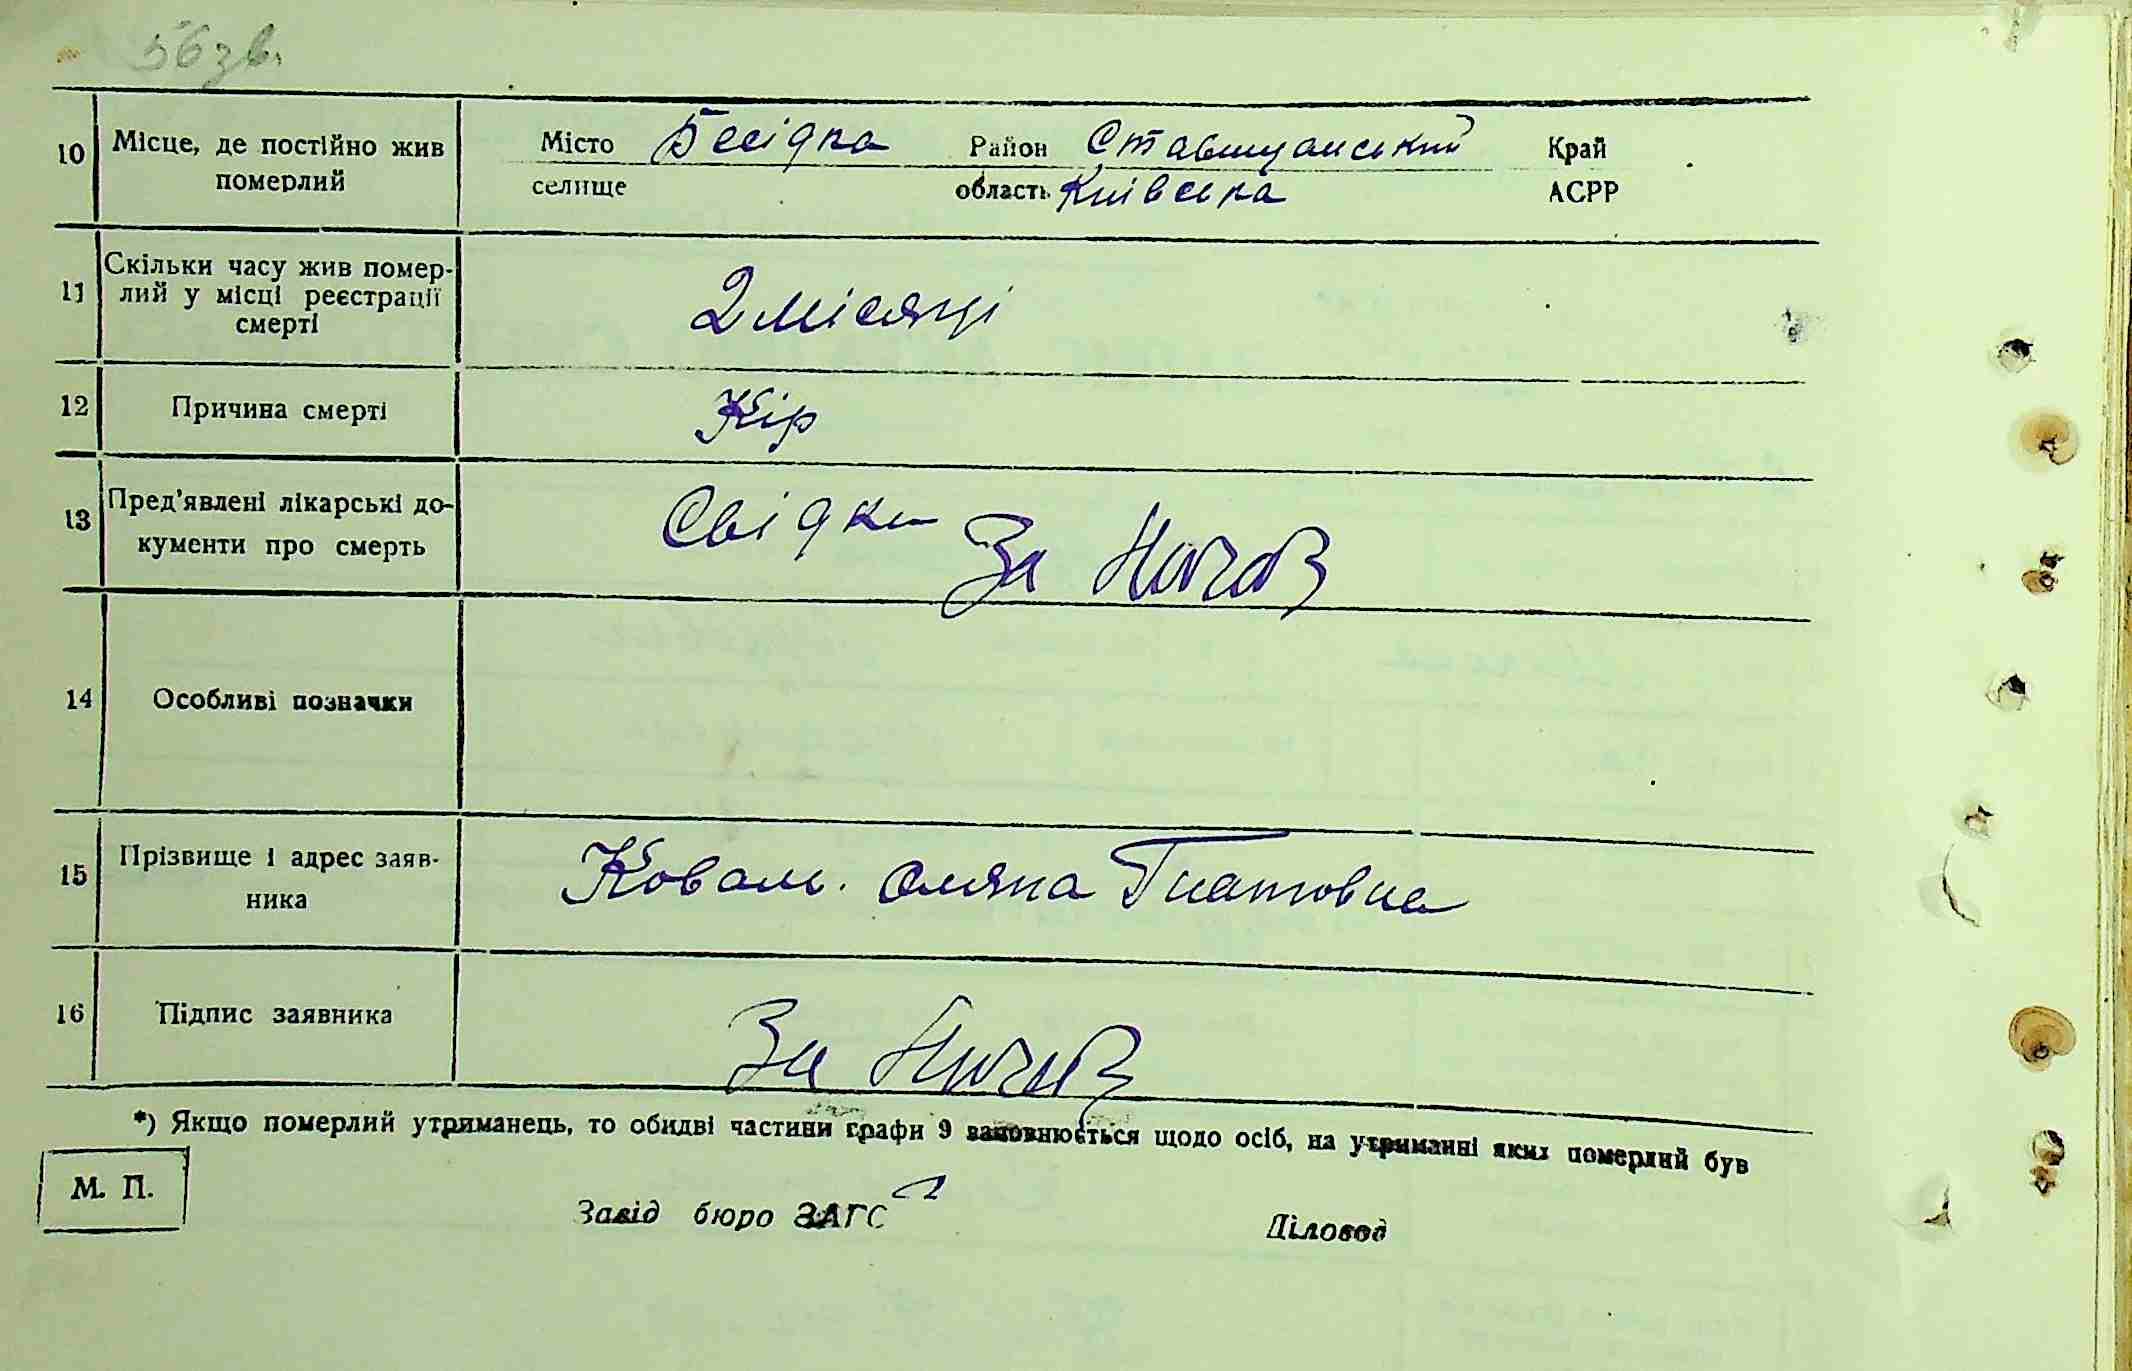 56зв.
10 Місце, де постійно жив Місто Бесідка Район Ставищанський Край
померлий селище область Київська АСРР
Скільки часу жив помер-
11 лий у місці реєстрації 2 місяці
смерті
12 Причина смерті Кір
Пред'явлені лікарські до- Свідки
13 кументи про смерть За
14 Особливі позначки
15 Прізвище і адрес заяв- Коваль. Оляна Гнатовна
ника
16 Підпис заявника За
*) Якщо померлий утриманець, то обидві частини графи 9 заповнюється щодо осіб, на утриманні яких померлий був
М. П.
Завід бюро ЗАГС Діловод